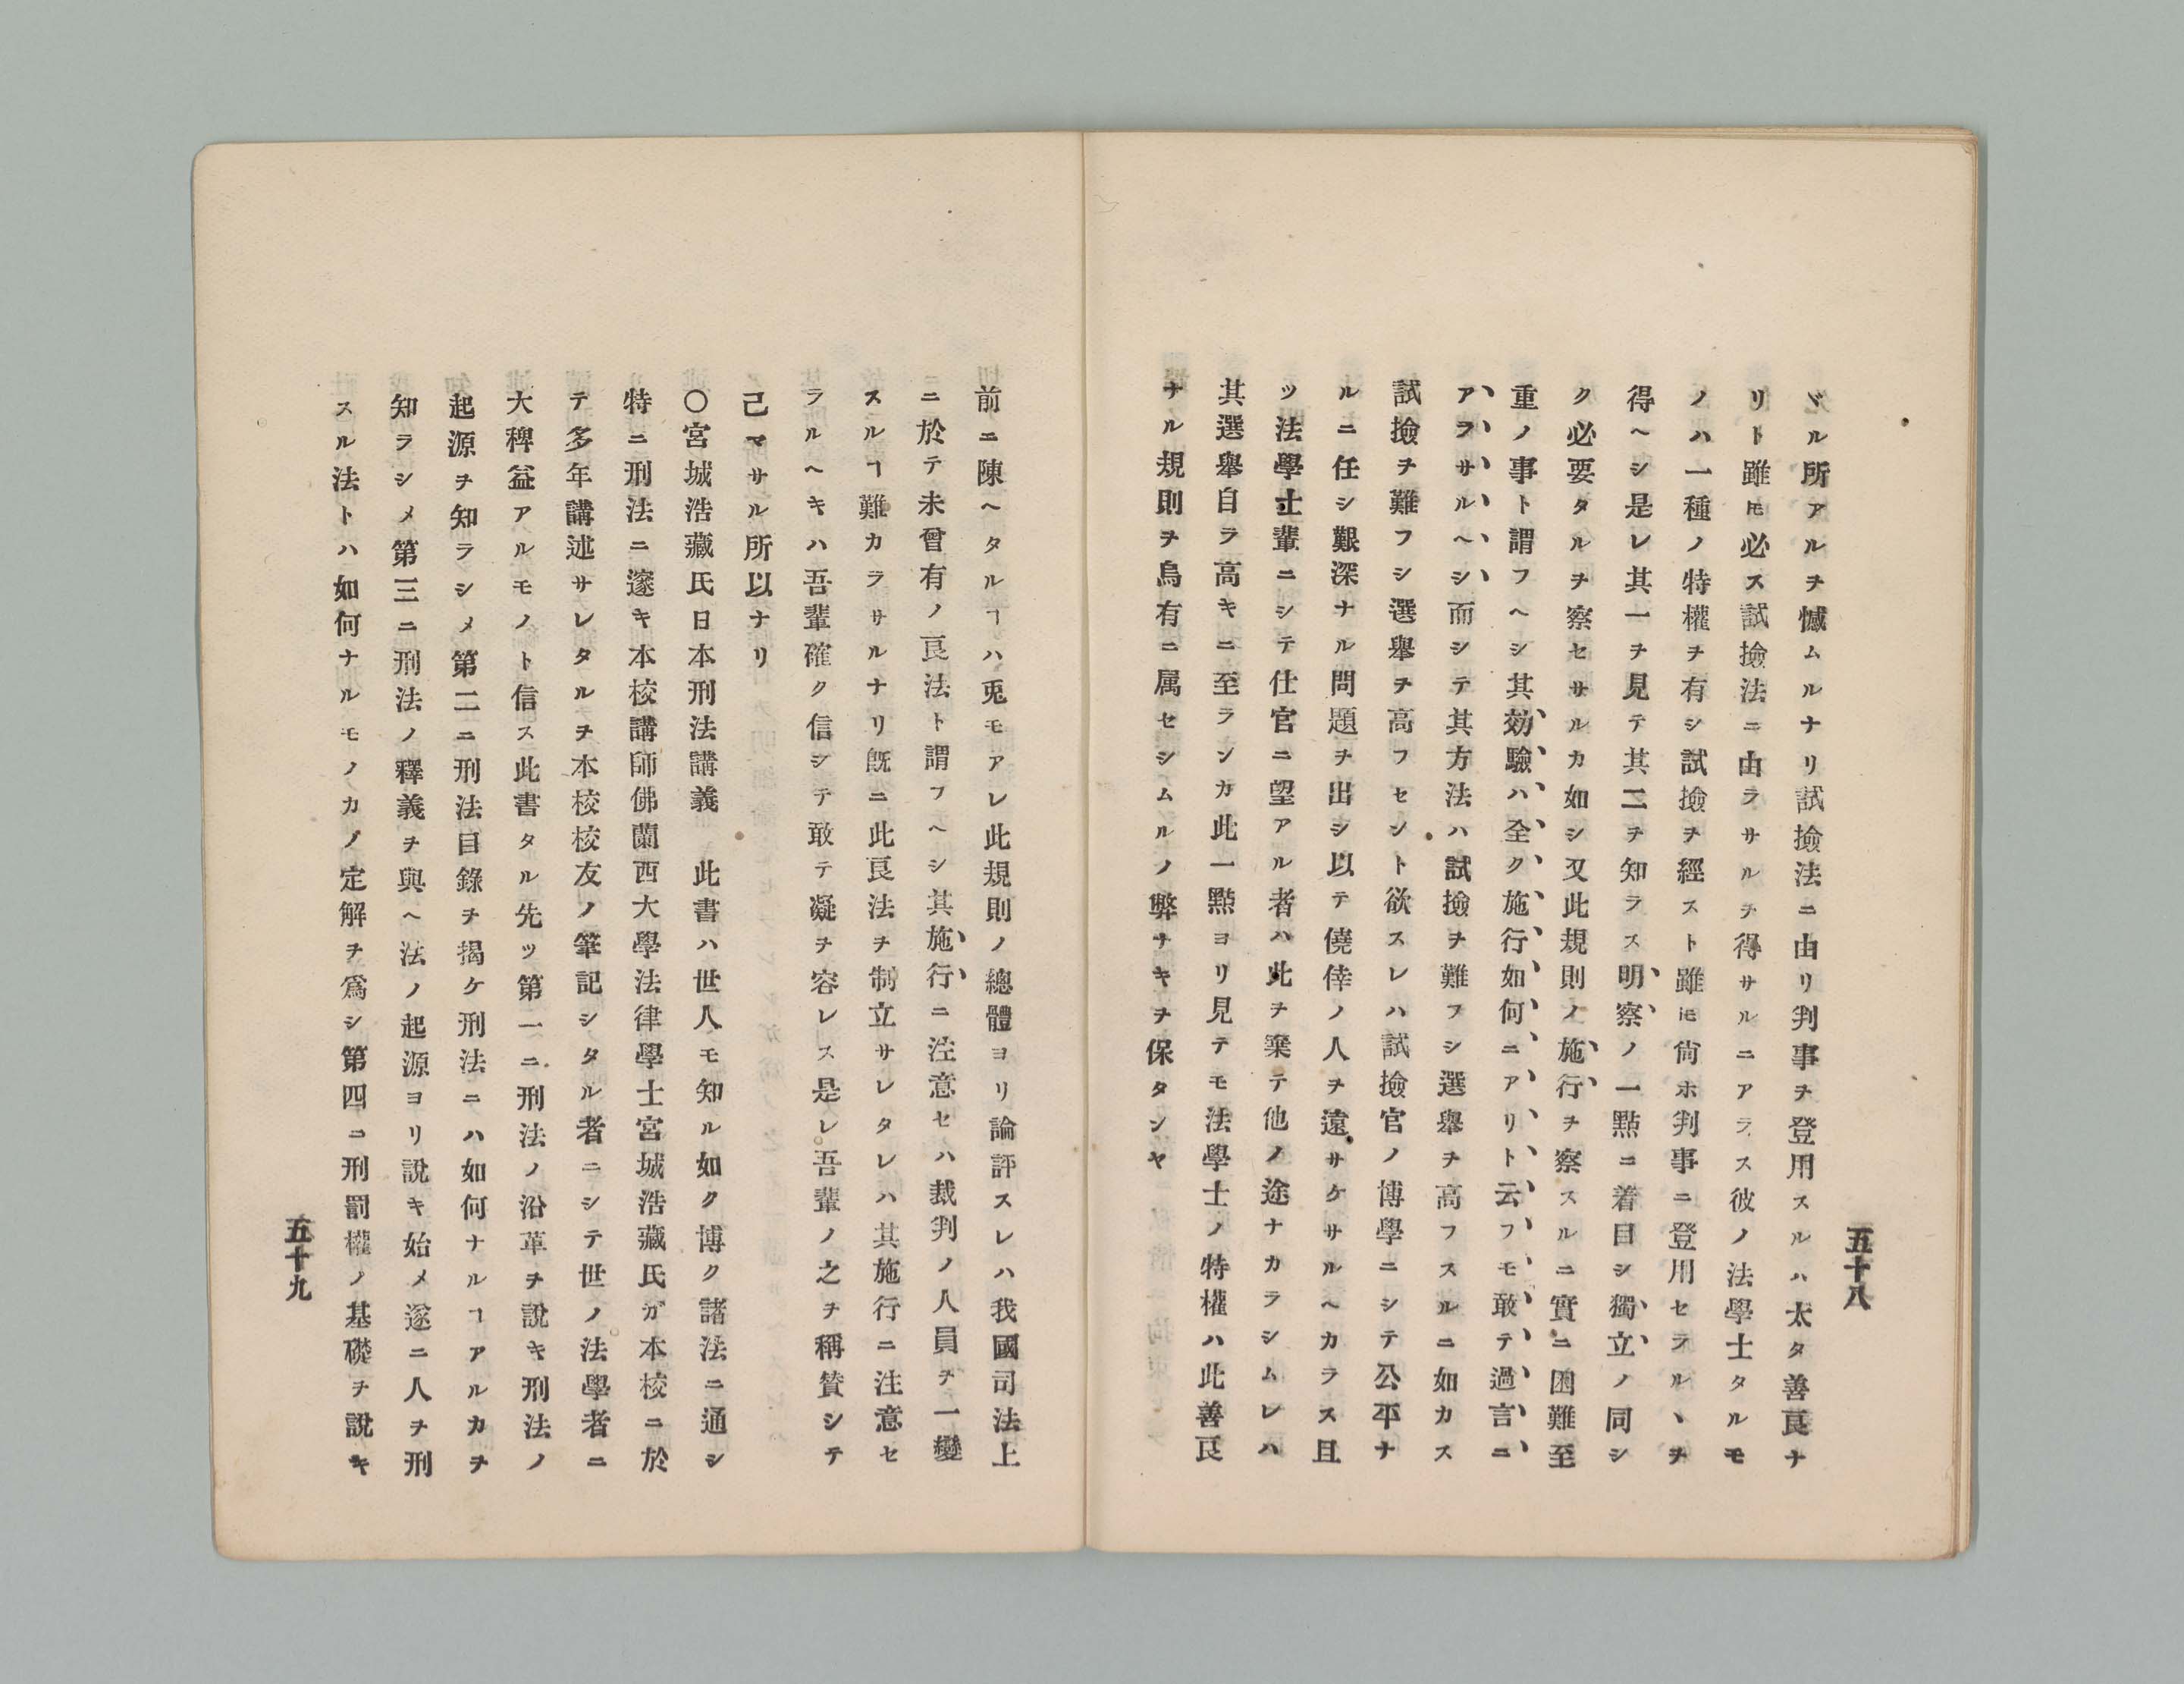 五十八
ドル所アルヲ憾ムルナリ試撿法ニ由リ判事ヲ登用スルハ太タ善良ナ
リト雖𪜈必ス試撿法ニ由ラサルヲ得サルニアラス彼ノ法學士タルモ
ノハ一種ノ特權ヲ有シ試撿ヲ經スト雖𪜈尙ホ判事ニ登用セラルヽヲ
得ヘシ是レ其一ヲ見テ其二ヲ知ラス明察ノ一點ニ着目シ獨立ノ同シ
ク必要タルヲ察セサルカ如シ又此規則ノ施行ヲ察スルニ實ニ困難至
重ノ事ト謂フヘシ其効驗ハ全ク施行如何ニアリト云フモ敢テ過言ニ
アラサルヘシ而シテ其方法ハ試撿ヲ難フシ選擧ヲ高フスルニ如カス
試撿ヲ難フシ選擧ヲ高フセント欲スレハ試撿官ノ博學ニシテ公平ナ
ルニ任シ艱深ナル問題ヲ出シ以テ僥倖ノ人ヲ遠サケサルヘカラス且
ツ法學士輩ニシテ仕官ニ望アル者ハ此ヲ棄テ他ノ途ナカラシムレハ
其選擧自ラ高キニ至ランカ此一點ヨリ見テモ法學士ノ特權ハ此善良
ナル規則ヲ烏有ニ属セシムルノ弊ナキヲ保タンヤ
前ニ陳ヘタルヿハ兎モアレ此規則ノ總體ヨリ論評スレハ我國司法上
ニ於テ未曾有ノ良法ト謂フヘシ其施行ニ注意セハ裁判ノ人員ヲ一變
スルヿ難カラサルナリ既ニ此良法ヲ制立サレタレハ其施行ニ注意セ
ラルヘキハ吾輩確ク信シテ敢テ凝ヲ容レス是レ吾輩ノ之ヲ稱賛シテ
己マサル所以ナリ
〇宮城浩藏氏日本刑法講義　此書ハ世人モ知ル如ク博ク諸法ニ通シ
特ニ刑法ニ邃キ本校講師佛蘭西大學法律學士宮城浩藏氏ガ本校ニ於
テ多年講述サレタルヲ本校校友ノ筆記シタル者ニシテ世ノ法學者ニ
大稗益アルモノト信ス此書タル先ツ第一ニ刑法ノ沿革ヲ說キ刑法ノ
起源ヲ知ラシメ第二ニ刑法目錄ヲ揭ケ刑法ニハ如何ナルヿアルカヲ
知ラシメ第三ニ刑法ノ釋義ヲ與ヘ法ノ起源ヨリ說キ始メ遂ニ人ヲ刑
スル法トハ如何ナルモノカノ定解ヲ爲シ第四ニ刑罰權ノ基礎ヲ說キ
五十九